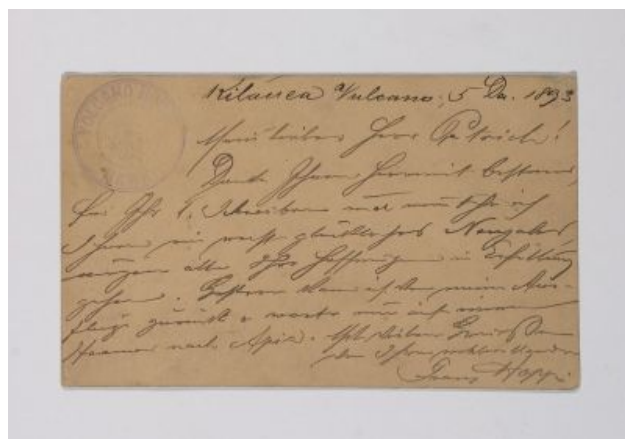 VOLCANO HOUSE
Kilauea Vulcano, 5 Dz. 1893
Mein lieber Herr
Danke Ihnen hiermit bestens
für Ihr l. Schreiben und wünsche ich
Ihnen ein recht glückliches Neujahr,
mögen alle Ihre Hoffnungen in Erfüllung
gehen. Gestern kam ich von meinem Aus-
fluge zurück & warte nun auf einen
Steamer nach Apia. Mit vielen Grüssen
der Ihnen
Franz Hopp